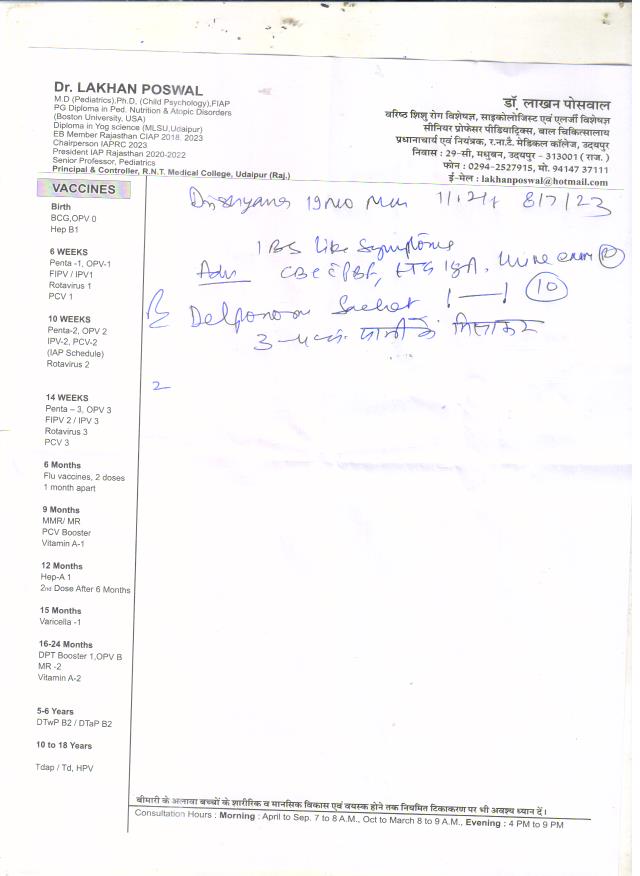 Dr. LAKHAN POSWAL
M.D (Pediatrics),Ph.D, (Child Psychology),FIAP
PG Diploma in Ped. Nutrition & Atopic Disorders
(Boston University, USA)
Diploma in Yog science (MLSU,Udaipur)
EB Member Rajasthan CIAP 2018, 2023
Chairperson IAPRC 2023
President IAP Rajasthan 2020-2022
Senior Professor, Pediatrics
Principal & Controller, R.N.T. Medical College, Udaipur (Raj.)
डॉ. लाखन पोसवाल
वरिष्ठ शिशु रोग विशेषज्ञ, साइकोलोजिस्ट एवं एलर्जी विशेषज्ञ
सीनियर प्रोफेसर पीडियाट्रिक्स, बाल चिकित्सालय
प्रधानाचार्य एवं नियंत्रक, र.ना.टै. मेडिकल कॉलेज, उदयपुर
निवास : 29-सी, मधुबन, उदयपुर – 313001 ( राज. )
फोन : 0294-2527915, मो. 94147 37111
ई-मेल : lakhanposwal@hotmail.com
VACCINES
Birth
BCG,OPV 0
Hep B1
6 WEEKS
Penta -1, OPV-1
FIPV / IPV1
Rotavirus 1
PCV 1
10 WEEKS
Penta-2, OPV 2
IPV-2, PCV-2
(IAP Schedule)
Rotavirus 2
14 WEEKS
Penta – 3, OPV 3
FIPV 2 / IPV 3
Rotavirus 3
PCV 3
6 Months
Flu vaccines, 2 doses
1 month apart
9 Months
MMR/ MR
PCV Booster
Vitamin A-1
12 Months
Hep-A 1
2nd Dose After 6 Months
15 Months
Varicella -1
16-24 Months
DPT Booster 1,OPV B
MR -2
Vitamin A-2
5-6 Years
DTwP B2 / DTaP B2
10 to 18 Years
Tdap / Td, HPV
19 mo 8/7/23
IBS like Symptoms
Adv CBC c PBF, TTG IgA, Urine
Sachet 1—1 10
3-4 पानी के मिलाकर
2
बीमारी के अलावा बच्चों के शारीरिक व मानसिक विकास एवं वयस्क होने तक नियमित टिकाकरण पर भी अवश्य ध्यान दें।
Consultation Hours : Morning : April to Sep. 7 to 8 A.M., Oct to March 8 to 9 A.M., Evening : 4 PM to 9 PM